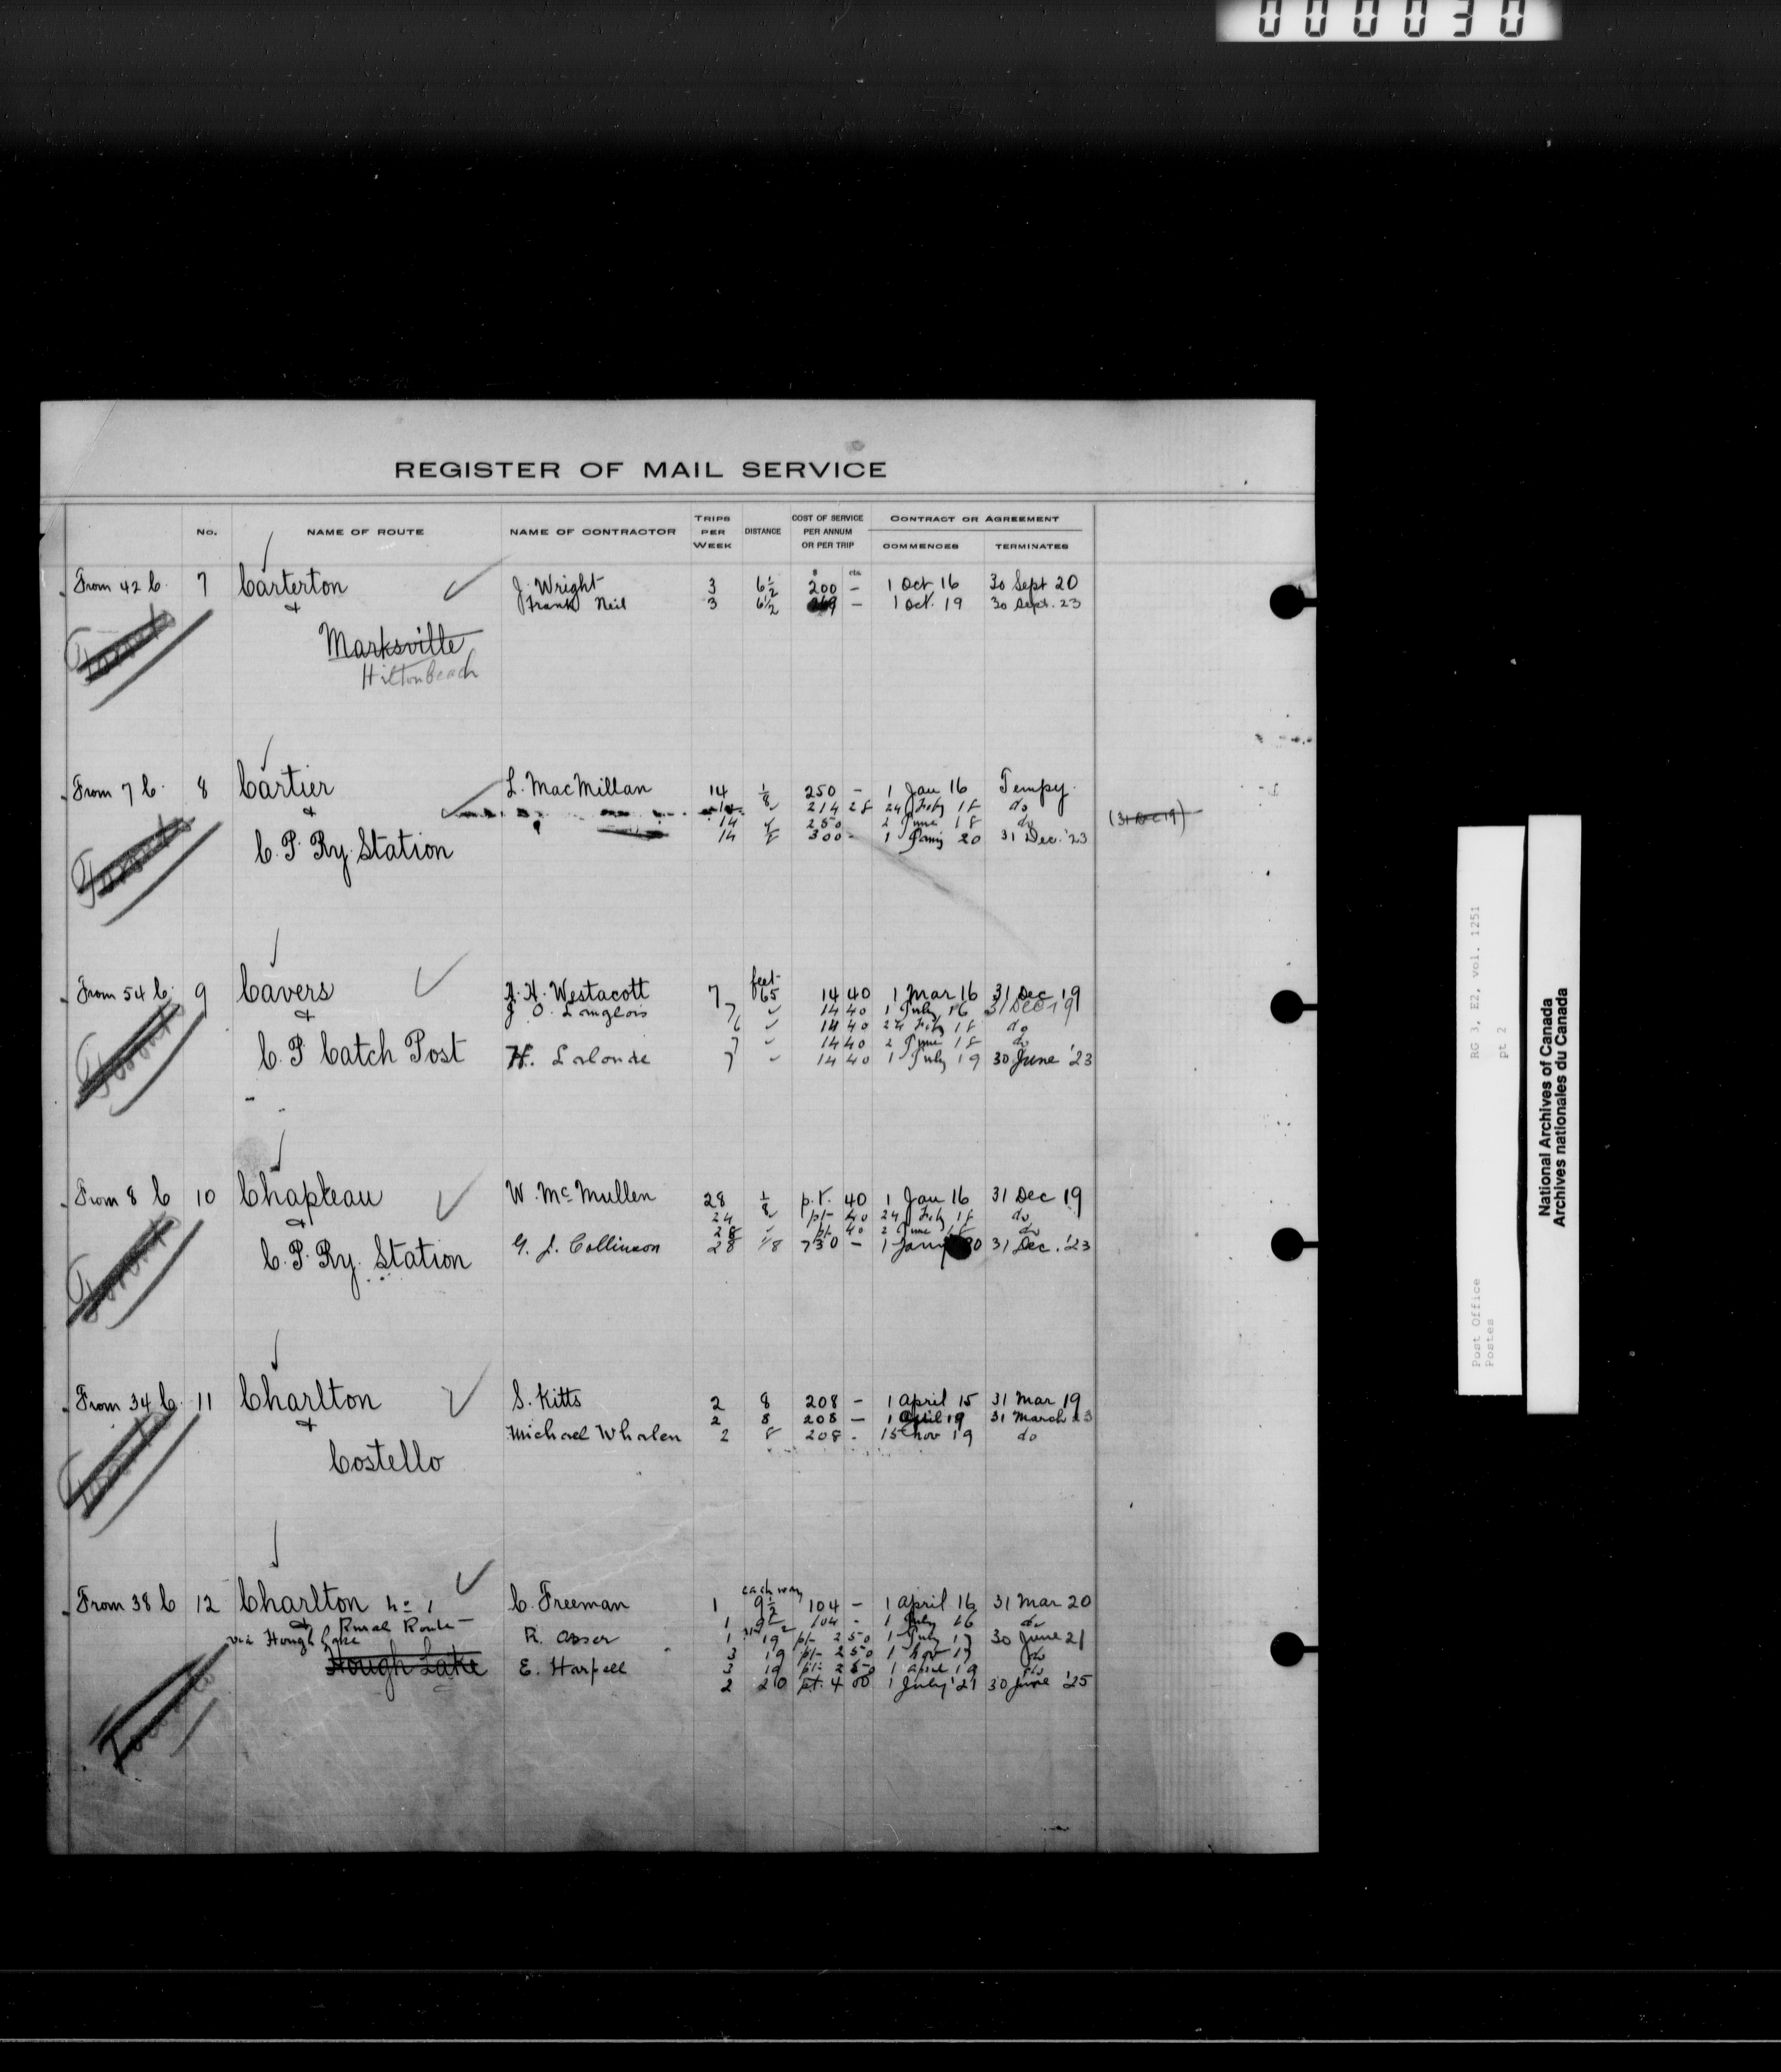 000030
REGISTER OF MAIL SERVICE
No. NAME OF ROUTE NAME OF CONTRACTOR TRIPS PER WEEK DISTANCE COST OF SERVICE PER ANNUM OR PER TRIP CONTRACT OR AGREEMENT COMMENCES TERMINATES
$ cts
From 42 C. 7 Carterton J. Wright 3 6½ 200 — 1 Oct 16 30 Sept 20
& Frank Neil 3 6½ — 1 Oct. 19 30 Sept. 23
Toronto
Marksville
Hilton Beach
From 7 C. 8 Cartier L. MacMillan 14 1/8 250 — 1 Jan 16 Tempy.
& 14 " 214 28 24 Feby 18 do
14 " 250 2 June 18 do (31 Dec 19)
14 1/8 300 - 1 Jany 20 31 Dec. '23
C. P. Ry. Station
Toronto
From 54 C. 9 Cavers A. H. Westacott 7 feet 65 14 40 1 Mar 16 31 Dec 19
& J. O. Langlois 7 " 14 40 1 July 16 31 Dec 19
6 " 14 40 24 Feby 18 do
7 " 14 40 2 June 18 do
C. P. Catch Post H. Lalonde 7 " 14 40 1 July 19 30 June '23
Toronto
From 8 C 10 Chapleau W. McMullen 28 1/8 p.t. 40 1 Jan 16 31 Dec 19
& 24 " pt 40 24 Feby 18 do
28 " pt 40 2 June 18 do
C. P. Ry. Station G. J. Collinson 28 1/8 730 — 1 Jany 20 31 Dec. '23
Toronto
From 34 C. 11 Charlton S. Kitts 2 8 208 — 1 April 15 31 Mar 19
& 2 8 208 — 1 April 19 31 March 23
Michael Whalen 2 8 208 - 15 Nov 19 do
Costello
Toronto
From 38 C 12 Charlton No 1 C. Freeman 1 each way 9½ 104 — 1 April 16 31 Mar 20
& Rural Route 1 9½ 104 - 1 July 16 do
via Hough Lake R. Asser 1 19 pt 2 50 1 July 17 30 June 21
3 19 pt 2 50 1 Nov 17 do
Hough Lake E. Harpell 3 19 pt 2 50 1 April 19 do
2 20 pt. 4 00 1 July '21 30 June '25
Toronto
Post Office
Postes
RG 3, E2, vol. 1251
pt 2
National Archives of Canada
Archives nationales du Canada